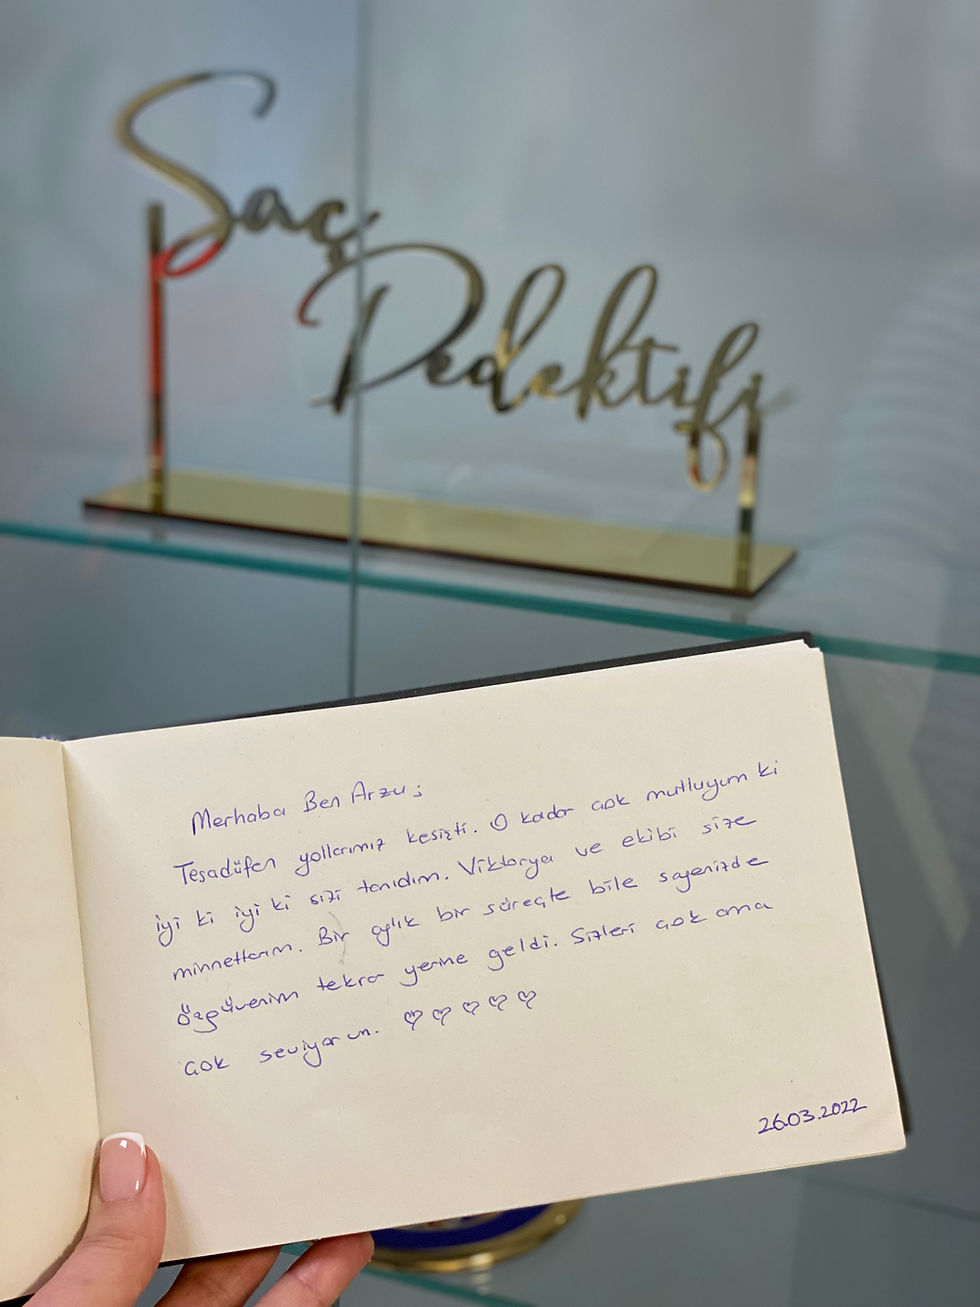 Saç
Dedektifi
Merhaba Ben Arzu;
Tesadüfen yollarımız kesişti. O kadar çok mutluyum ki
iyi ki iyi ki sizi tanıdım. Viktorya ve ekibi size
minnettarım. Bir aylık bir süreçte bile sayenizde
özgüvenim tekrar yerine geldi. Sizleri çok ama
çok seviyorum. ♡ ♡ ♡ ♡ ♡
26.03.2022